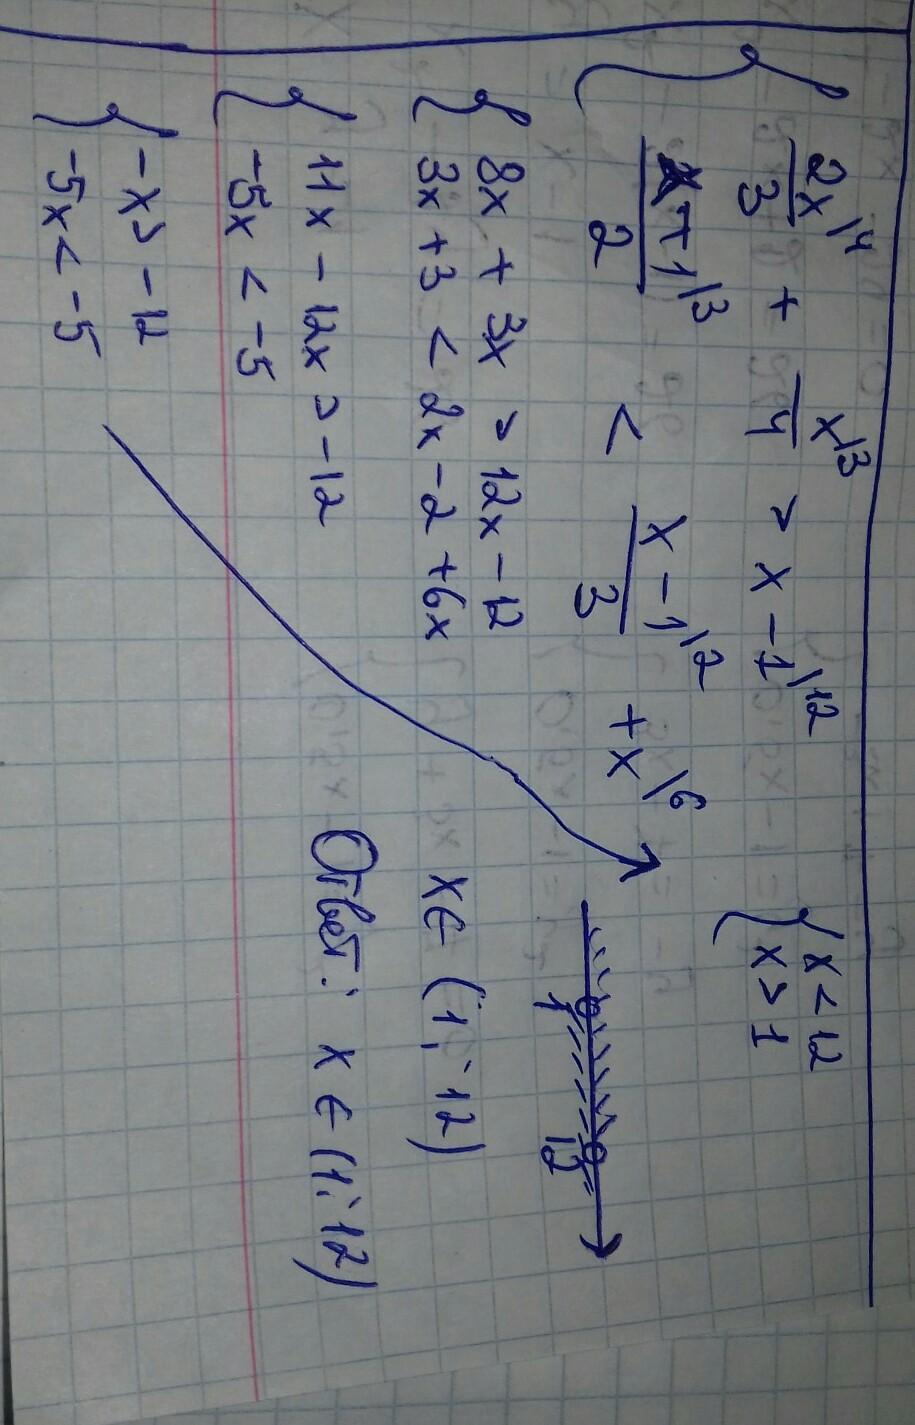 { 2x/3 |4 + x/4 |3 > x - 1 |12
x+1/2 |3 < x-1/3 |2 + x |6
{ 8x + 3x > 12x - 12
3x + 3 < 2x - 2 + 6x
{ 11x - 12x > -12
-5x < -5
{ -x > -12
-5x < -5
{ x < 12
x > 1
1 12
x ∈ (1; 12)
Ответ: x ∈ (1; 12)